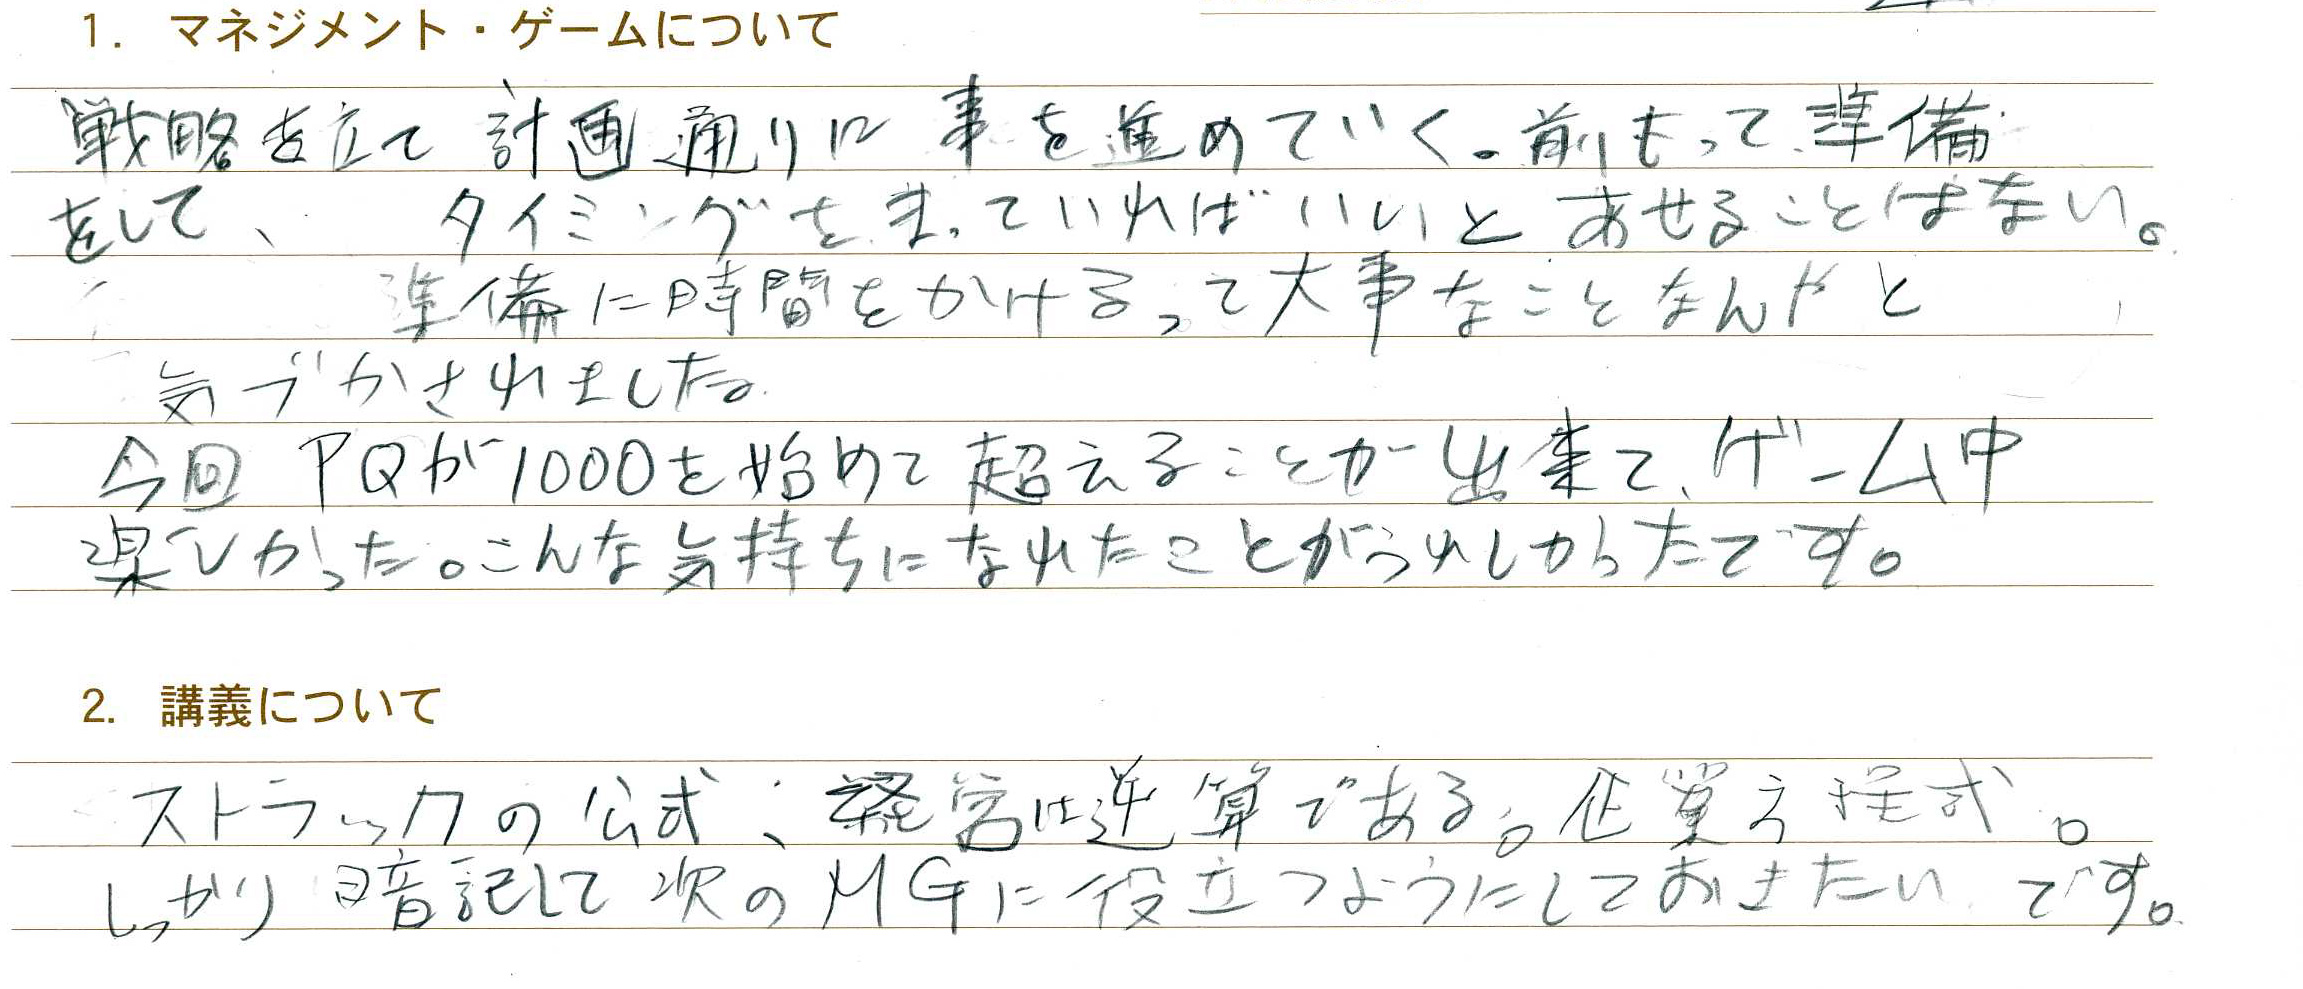 1. マネジメント・ゲームについて
戦略を立て計画通りに事を進めていく。前もって準備
をして、タイミングをまっていればいいとあせることはない。
準備に時間をかけるって大事なことなんやと
気づかされました。
今回PQが1000を始めて超えることが出来て、ゲーム中
楽しかった。こんな気持ちになれたことがうれしかったです。
2. 講義について
ストラックの公式、経営は逆算である。企業方程式。
しっかり暗記して次のMGに役立つようにしておきたいです。